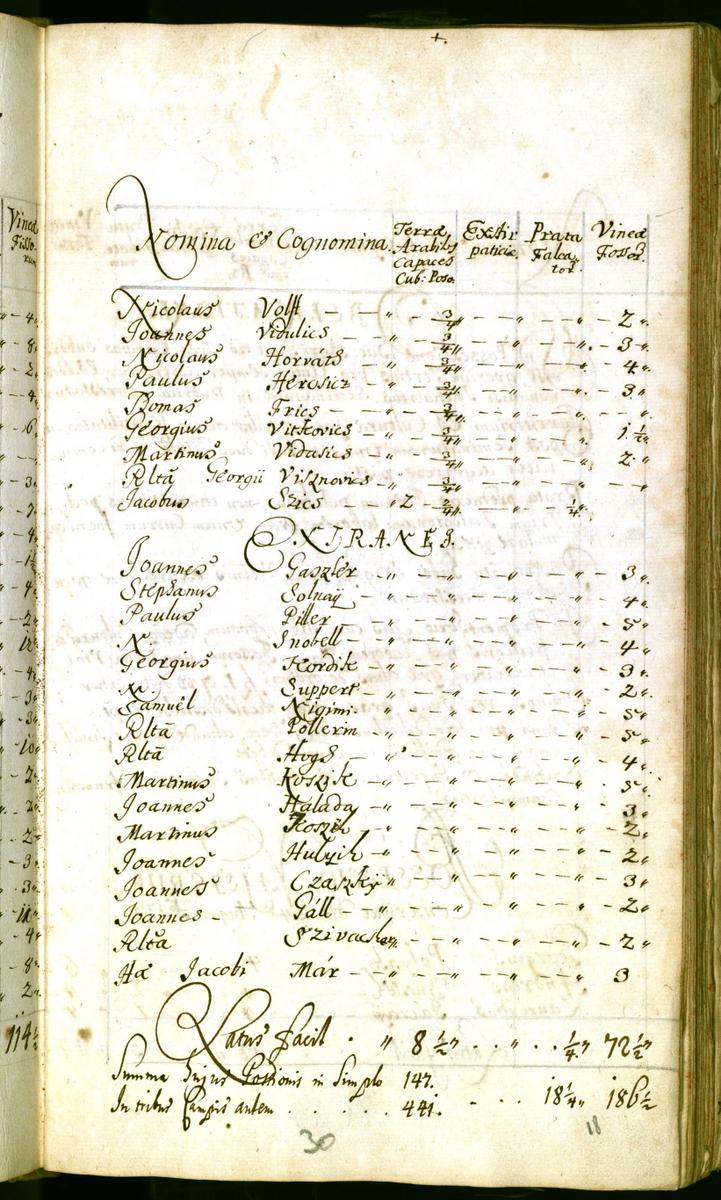 +.
Vineæ
Fosso-
rum
Nomina & Cognomina. Terræ Arabiles Capaces Cub: Poso. Exstirpaticiæ. Prata Falcator. Vineæ Fossor.
Nicolaus Volft - - " 3/4 " - - " - - " - 2 ".
Joannes Vidulics - - " 3/4 " - - " - - " - 3 ".
Nicolaus Horváts - " 3/4 " - - " - - " - 4 ".
Paulus Herosicz - " 3/4 " - - " - - " - 3 ".
Thomas Frics - - " 3/4 " - - " - - " - - ".
Georgius Vitkovics - " 3/4 " - - " - - " 1 1/2 ".
Martinus Vidasics - " 3/4 " - - " - - " 2 ".
Rltã Georgii Visznovics - " 3/4 " - - " - - " - - "
Jacobus Szics - - 2 2/4 " - - " 1/4 "
EXTRANEI.
Joannes Gaszler - " - - " - - " - - " - 3 ".
Stephanus Solnaÿ - " - - " - - " - - " - 4 ".
Paulus Piller - " - - " - - " - - " - 5 ".
N. Snobell - " - - " - - " - - " - 4 ".
Georgius Hordik - " - - " - - " - - " - 3 ".
N. Suppert - " - - " - - " - - " - 2 ".
Samuêl Nigimi. - " - - " - - " - - " - 5 ".
Rltã Pollerin - " - - " - - " - - " - 5 ".
Rltã Hogs - " - - " - - " - - " - 4 ".
Martinus Koszik - " - - " - - " - - " - 5 ".
Joannes Haladay - " - - " - - " - - " - 3 ".
Martinus Koszik - " - - " - - " - - " - 2 ".
Joannes Hulyik - " - - " - - " - - " - 2 ".
Joannes Czaszkÿ " - - " - - " - - " - 3 ".
Joannes - Gáll - - " - - " - - " - - " - 2 ".
Rltã Szivacker " - - " - - " - - " - 2 ".
Hæ Jacobi Már - - " - - " - - " - - " 3
Latus facit . " 8 1/2 " . . " . . 1/4 " 72 1/2 "
Summa hujus Possionis in Simplo 147.
In tribus Campis autem . . . . . . 441. . . . 18 1/4 " 186 1/2
114 1/2
30
18